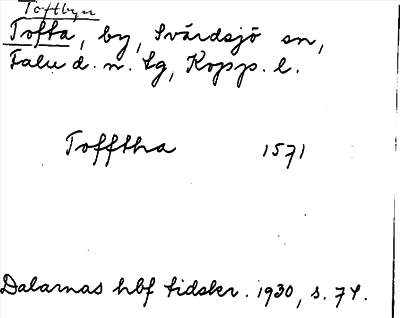 Toftbyn
Tofta, by, Svärdsjö sn,
Falu d. n. lg, Kopp. l.
Tofftha 1571
Dalarnas hbf tidskr. 1930, s. 74.